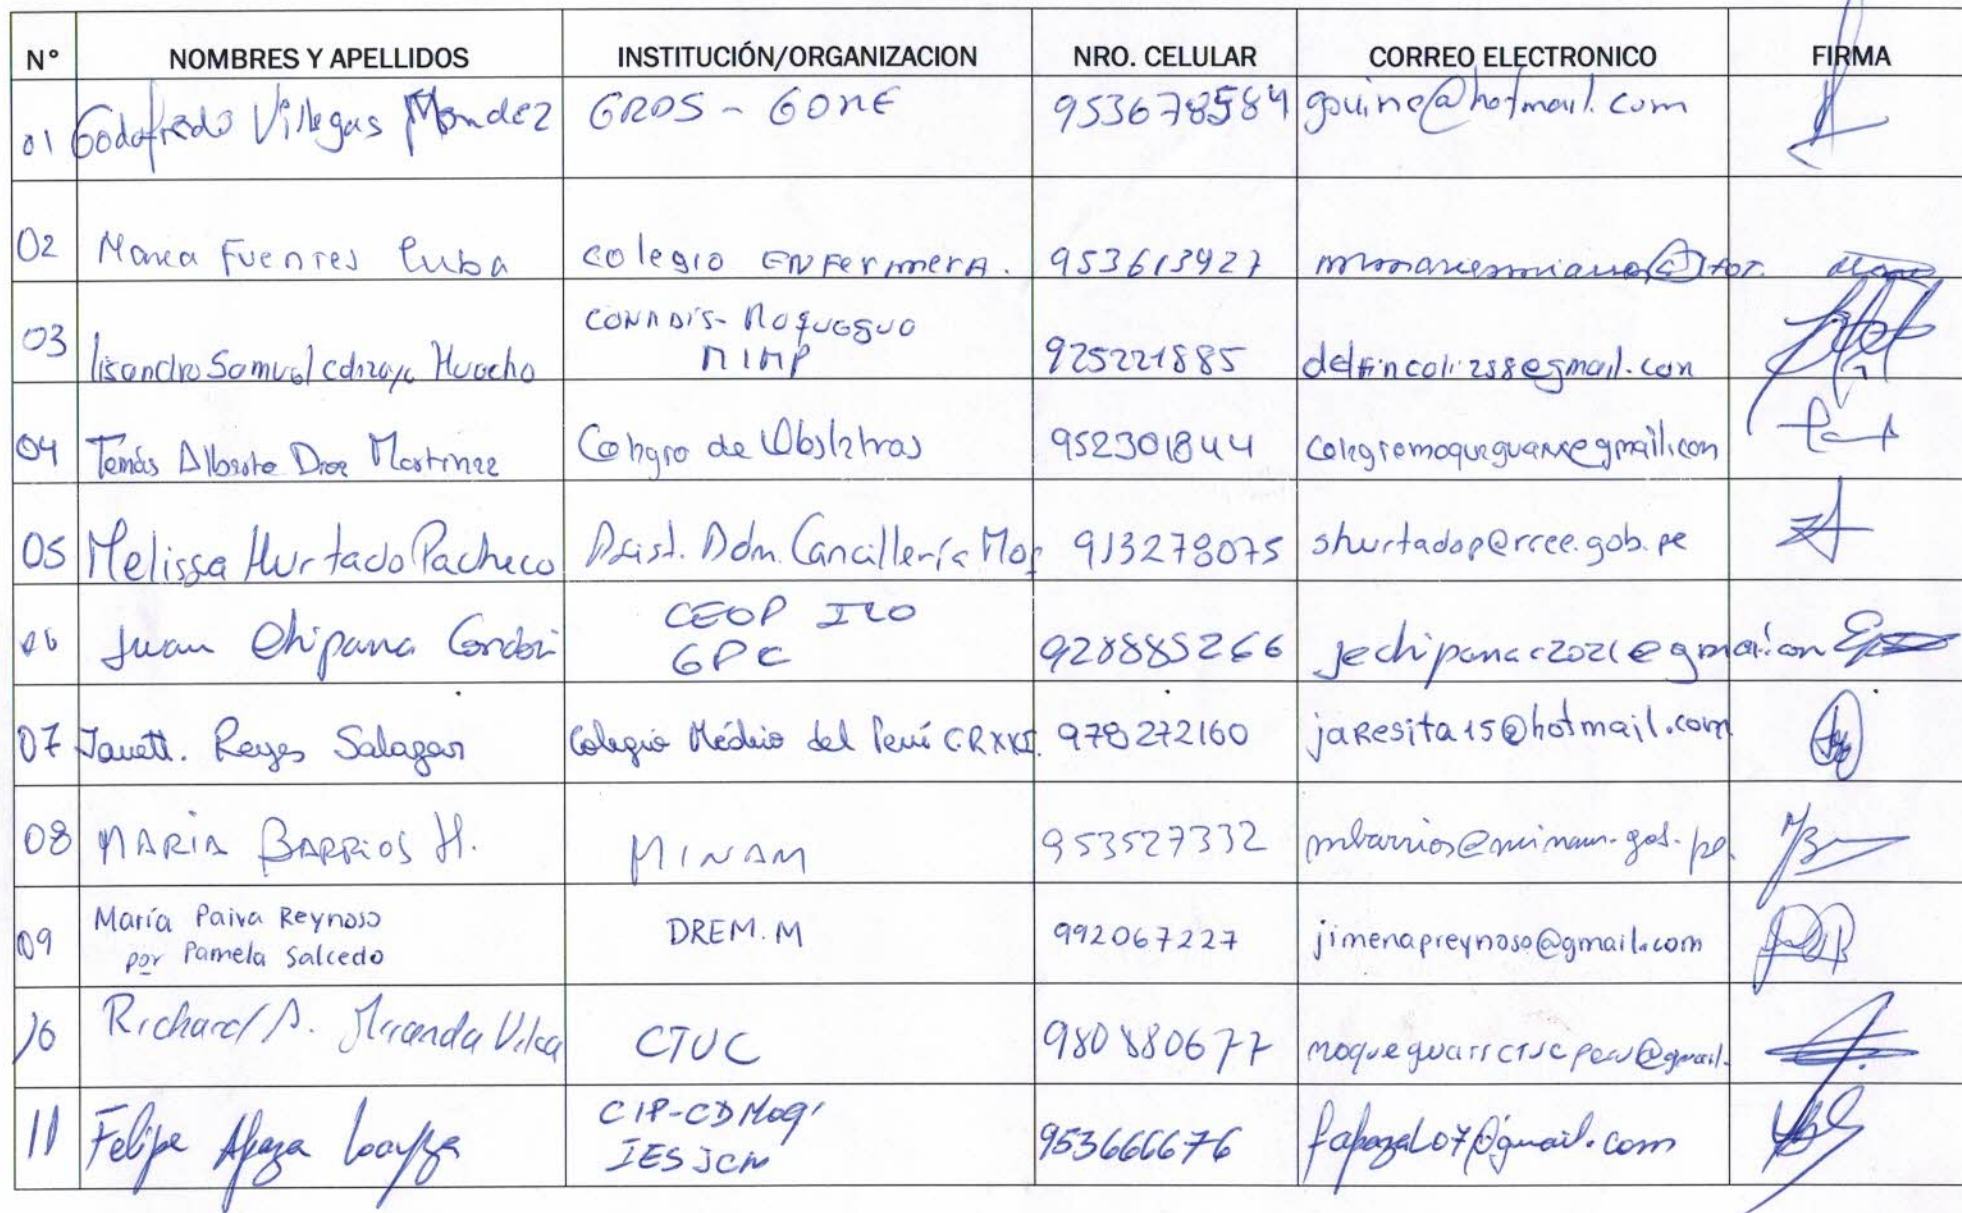 N° NOMBRES Y APELLIDOS INSTITUCIÓN/ORGANIZACION NRO. CELULAR CORREO ELECTRONICO FIRMA
01 Godofredo Villegas Mendez GRDS - GORE 953678584 @hotmail.com
02 Maria Fuentes Cuba colegio ENFermerA. 953613927
03 Lisandro Samuel Huacho CONADIS- Moquegua
MIMP 925221885 delfincoli288@gmail.com
04 Tomás Alberto Diaz Martinez Colegio de Obstetras 952301844
05 Melissa Hurtado Pacheco Asist. Adm. Cancillería Moq 913278075 shurtadop@rree.gob.pe
06 Juan Chipana Condori CEOP ILO
GPC 928885266 jechipanac2021@
07 Janett. Reyes Salazar Colegio Médico del Perú C.R 978272160 jaresita15@hotmail.com
08 MARIA BARRIOS H. MINAM 953527332 mbarrios@minam.gob.pe.
09 María Paiva Reynoso
por Pamela Salcedo DREM.M 992067227 jimenapreynoso@gmail.com
10 Richard A. Miranda Vilca CTUC 980880677
11 Felipe Apaza Loayza CIP-CDMoq'
IES JCM 953666676 fapazal07@gmail.com